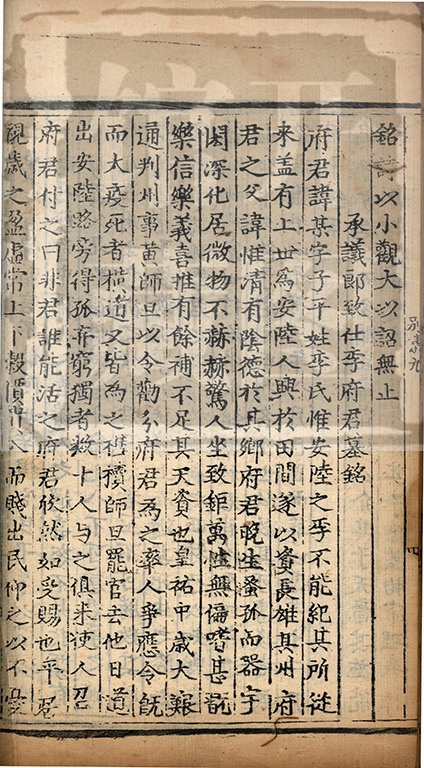 銘詩以小觀大以詔無止
承議郎致仕李府君墓銘
府君諱某字子平姓李氏惟安陸之李不能紀其所從
来盖有上世為安陸人興於田間遂以資長雄其州府
君之父諱惟清有陰德於其鄉府君晚生蚤孤而器宇
閎深化居微物不赫赫驚人坐致鉅萬性無偏嗜甚
樂信樂義喜推有餘補不足其天資也皇祐中歳大艱
通判州事黄師旦以令勸分府君為之率人爭應令旣
而大疫死者橫道又皆為之槥櫝師旦罷官去他日道
出安陸路旁得孤弃窮獨者数十人与之俱来使人召
府君付之曰非君誰能活之府君欣然如受賜也平居
視歳之盈虚常上下糓價而賤出民仰之以不
別集九
四